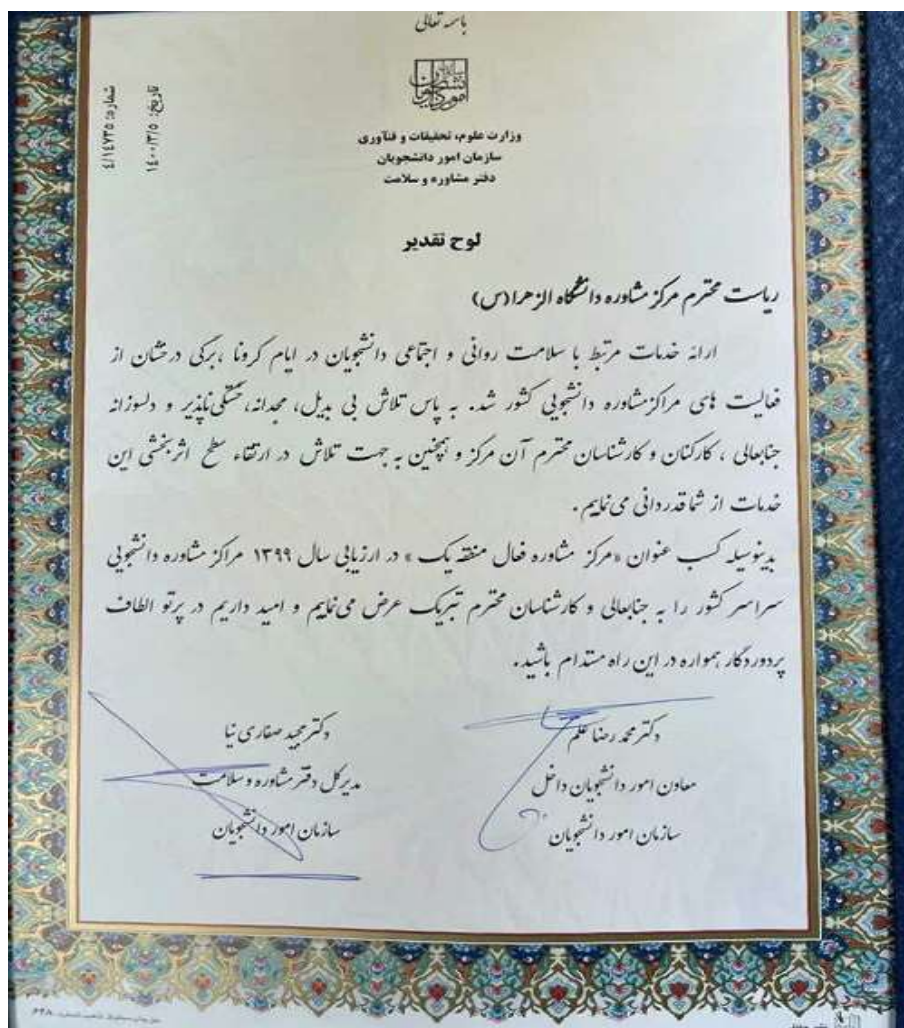 باسمه تعالی
سازمان امور دانشجویان
وزارت علوم، تحقیقات و فنّآوری
سازمان امور دانشجویان
دفتر مشاوره و سلامت
تاریخ: ۱٤۰۰/۳/۵
شماره: ٤/۱٤۷۳۵
لوح تقدیر
ریاست محترم مرکز مشاوره دانشگاه الزهرا (س)
ارائه خدمات مرتبط با سلامت روانی و اجتماعی دانشجویان در ایام کرونا ،برگی درخشان از
فعالیت های مراکزمشاوره دانشجویی کشور شد. به پاس تلاش بی بدیل، مجدانه، خستگی‌ناپذیر و دلسوزانه
جنابعالی ، کارکنان و کارشناسان محترم آن مرکز و همچنین به جهت تلاش در ارتقاء سطح اثربخشی این
خدمات از شما قدردانی می‌نمایم.
بدینوسیله کسب عنوان «مرکز مشاوره فعال منطقه یک » در ارزیابی سال ۱۳۹۹ مراکز مشاوره دانشجویی
سراسر کشور را به جنابعالی و کارشناسان محترم تبریک عرض می‌نمایم و امید داریم در پرتو الطاف
پروردگار همواره در این راه مستدام باشید.
دکتر محمد رضا علم
معاون امور دانشجویان داخل
سازمان امور دانشجویان
دکتر مجید صفاری نیا
مدیرکل دفتر مشاوره و سلامت
سازمان امور دانشجویان